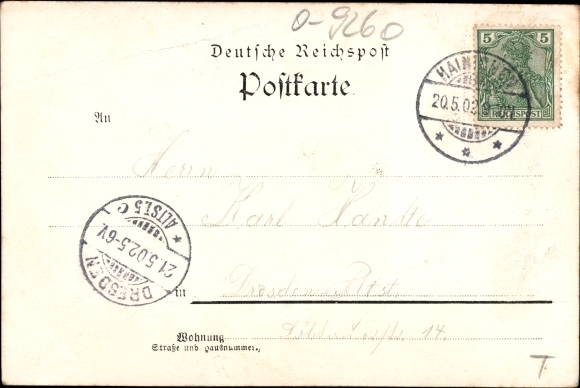 0-9260
Deutsche Reichspost
Postkarte
5 5
REICHSPOST
20.5.02
An
Herrn
Karl
ALTST. 5 c
21.5.02.5-6V.
DRESDEN
in Dresden-Altst.
Wohnung 14.
Straße und Hausnummer.
T.